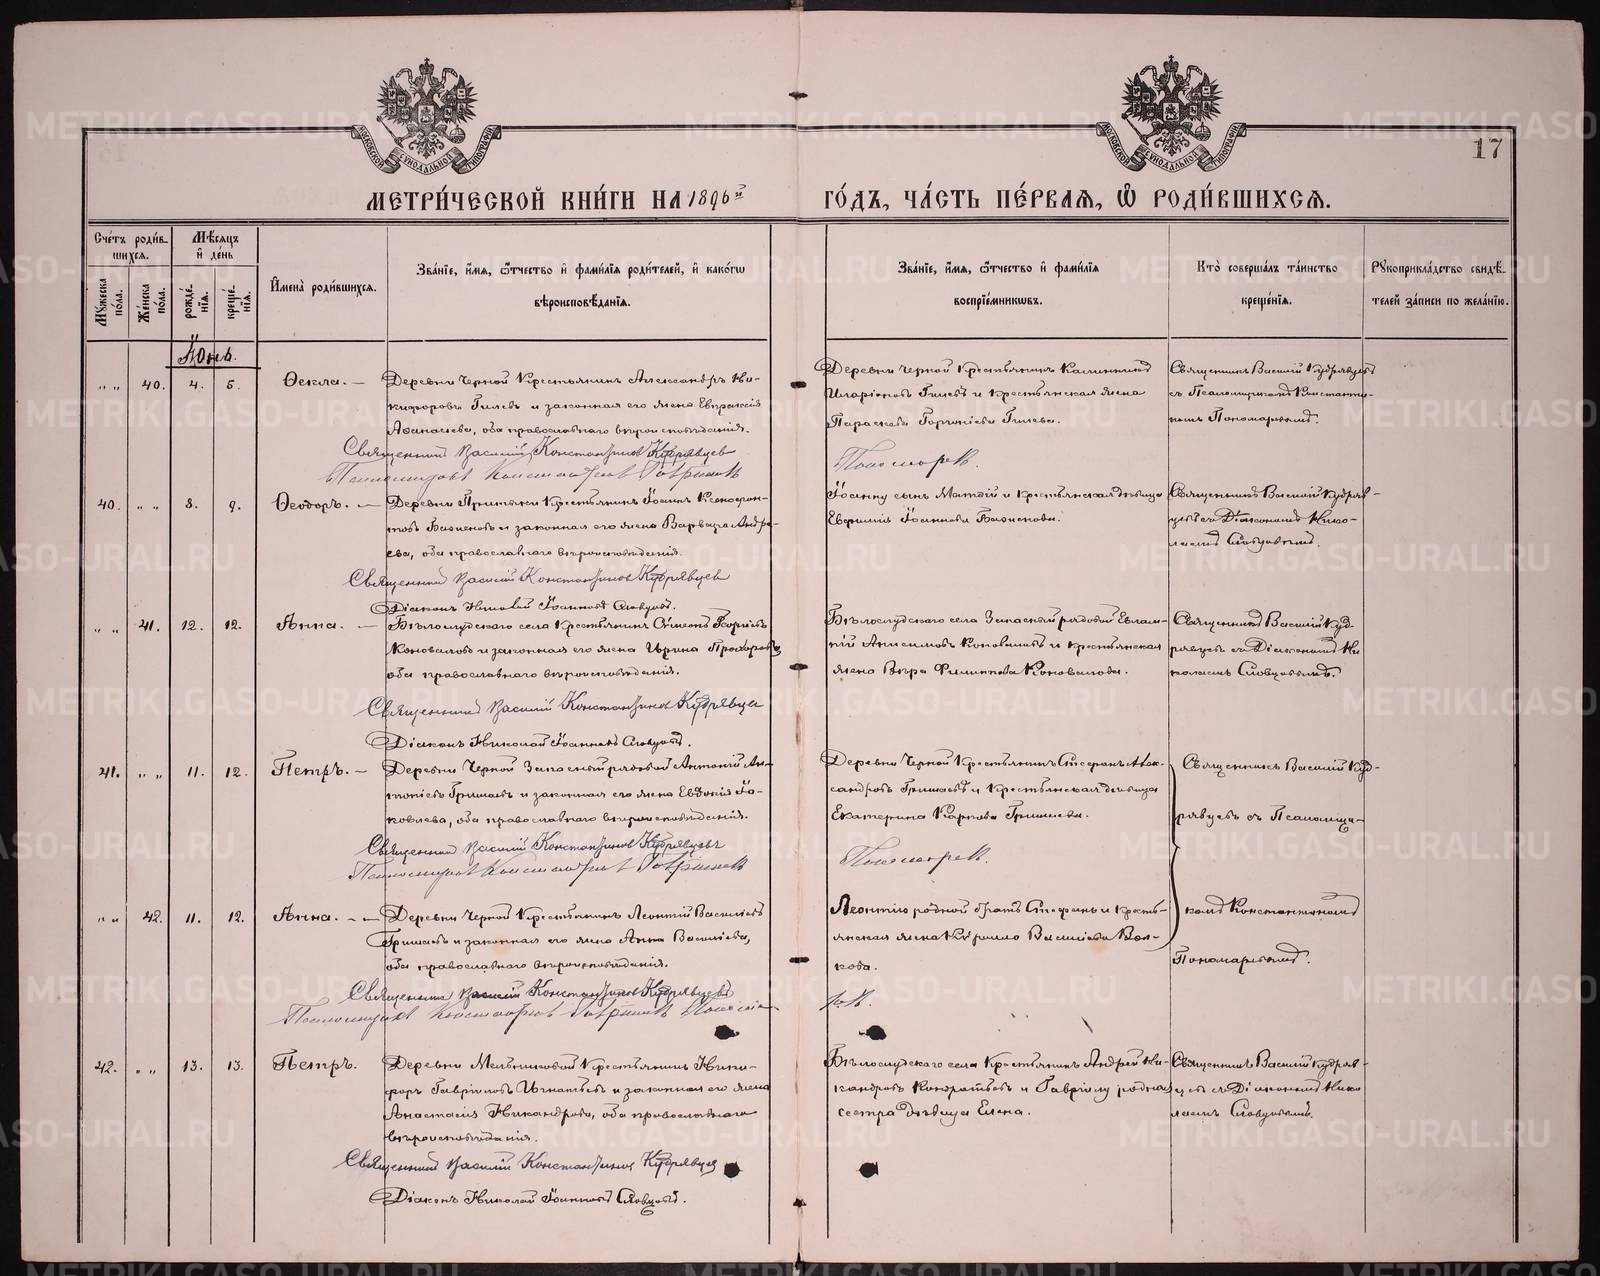 МЕТРИ́ЧЕСКОЙ КНИ́ГИ НА 1896й ГО́ДЪ, ЧА́СТЬ ПЕ́РВАЯ, Ѡ РОДИ́ВШИХСЯ.
17
Сче́тъ роди́в-
шихся.
Му́жеска по́ла.
Же́нска по́ла.
Мѣ́сяцъ
и҆ де́нь
рожде́-
нїя.
креще́-
нїя.
И҆мена̀ роди́вшихся.
Зва́нїе, и҆́мя, ѻ҆́тчество и҆ фами́лїя роди́телей, и҆ како́гѡ
вѣроисповѣ́данїя.
Зва́нїе, и҆́мя, ѻ҆́тчество и҆ фами́лїя
воспрїе́мникѡвъ.
Кто̀ соверша́лъ та́инство
креще́нїя.
Рꙋкоприкла́дство свидѣ́-
телей за́писи по жела́нїю.
Іюнь.
„ „ 40. 4. 5. Ѳекла. —
Деревни Черной Крестьянинъ Александръ Ни-
кифоровъ Гилевъ и законная его жена Евпраксія
Аѳанасіева, оба православнаго вѣроисповѣданія.
Священникъ Василій Константиновъ Кудрявцев
Псаломщикъ Константинъ
Деревни Черной Крестьянинъ Каллиникъ
Иларіоновъ Гилевъ и крестьянская жена
Параскева Гилева.
Пономарев.
Священникъ Василій Кудрявцевъ
съ Псаломщикомъ Константи-
номъ Пономаревымъ.
40. „ „ 8. 9. Ѳеодоръ. —
Деревни Крестьянинъ Іоаннъ Ксенофон-
товъ и законная его жена Варвара Андре-
ева, оба православнаго вѣроисповѣданія.
Священникъ Василій Константиновъ Кудрявцев
Діаконъ Николай Іоанновъ Словцовъ.
Іоанну сынъ Матѳій и крестьянская дѣвица
Евѳимія Іоаннова
Священникъ Василій Кудряв-
цевъ съ Діакономъ Нико-
лаемъ Словцовымъ.
„ „ 41. 12. 12. Анна. —
Бѣлослудскаго села Крестьянинъ Георгіевъ
Коноваловъ и законная его жена Ирина Прохорова
оба православнаго вѣроисповѣданія.
Священникъ Василій Константиновъ Кудрявцев
Діаконъ Николай Іоанновъ Словцовъ.
Бѣлослудскаго села Запасный рядовой Евлам-
пій Анисимовъ Коноваловъ и крестьянская
жена Вѣра Филиппова Коновалова.
Священникъ Василій Куд-
рявцевъ съ Діакономъ Ни-
колаемъ Словцовымъ.
41. „ „ 11. 12. Петръ. —
Деревни Черной Запасный рядовой Антоній Ан-
тоніевъ Гришаевъ и законная его жена Евдокія Іа-
ковлева, оба православнаго вѣроисповѣданія.
Священникъ Василій Константиновъ Кудрявцевъ
Псаломщикъ Константинъ
Деревни Черной Крестьянинъ Стефанъ Алек-
сандровъ Гришаевъ и Крестьянская дѣвица
Екатерина Карпова Гришаева.
Пономарев.
Священникъ Василій Куд-
рявцевъ съ Псаломщи-
„ „ 42. 11. 12. Анна. —
Деревни Черной Крестьянинъ Леонтій Василіевъ
Гришаевъ и законная его жена Анна Василіева,
оба православнаго вѣроисповѣданія.
Священникъ Василій Константиновъ Кудрявцевъ
Псаломщикъ Константинъ
Леонтію родной братъ Стефанъ и кресть-
янская жена Василіева Вол-
кова.
комъ Константиномъ
Пономаревымъ.
42. „ „ 13. 13. Петръ.
Деревни Мельниковой Крестьянинъ Ники-
форъ Гавріиловъ Игнатьевъ и законная его жена
Анастасія Никандрова, оба православнаго
вѣроисповѣданія.
Священникъ Василій Константиновъ Кудрявцев
Діаконъ Николай Іоанновъ Словцовъ.
Бѣлослудскаго села Крестьянинъ Андрей Ни-
кандровъ Кондратьевъ и Гавріилу родная
сестра дѣвица Елена.
Священникъ Василій Кудряв-
цевъ съ Діакономъ Нико-
лаемъ Словцовымъ.
METRIKI.GASO-URAL.RU